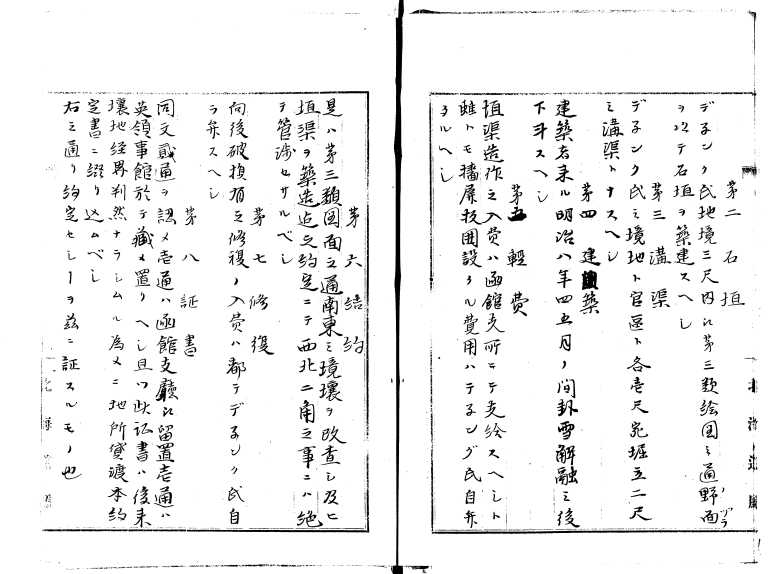 第二 石垣
デネンク氏地境三尺内ニ第三類絵図之通野面ヅラ
ヲ以テ石垣ヲ築建スヘシ
第三 溝渠
デネンク氏之境地ト官区ト各壱尺宛堀立二尺
之溝渠トナスヘシ
第四 建築
建築者来ル明治八年四五月ノ間卦雪解融之後
下手スヘシ
第五 軽費
垣渠造作之入費ハ函館支所ニテ支給スヘシト
雖トモ墻屏牧囲設クル費用ハテネング氏自弁
タルヘシ
第六 結約
是ハ第三類図面之通南東之境壌ヲ改査シ及ヒ
垣渠ヲ築造迠之約定ニテ西北二角之事ニハ絶
テ管渉セサルベシ
第七 修復
向後破損有之修復ノ入費ハ都テデネンク氏自
ラ弁スヘシ
第八 証書
同文貳通ヲ認メ壱通ハ函館支廳ニ留置壱通ハ
英領事館於テ蔵メ置クヘシ且ツ此証書ハ後来
壌地経界判然ナラシムル為メニ地所貸渡本約
定書ニ綴リ込ムベシ
右之通リ約定セシヿヲ茲ニ証スルモノ也